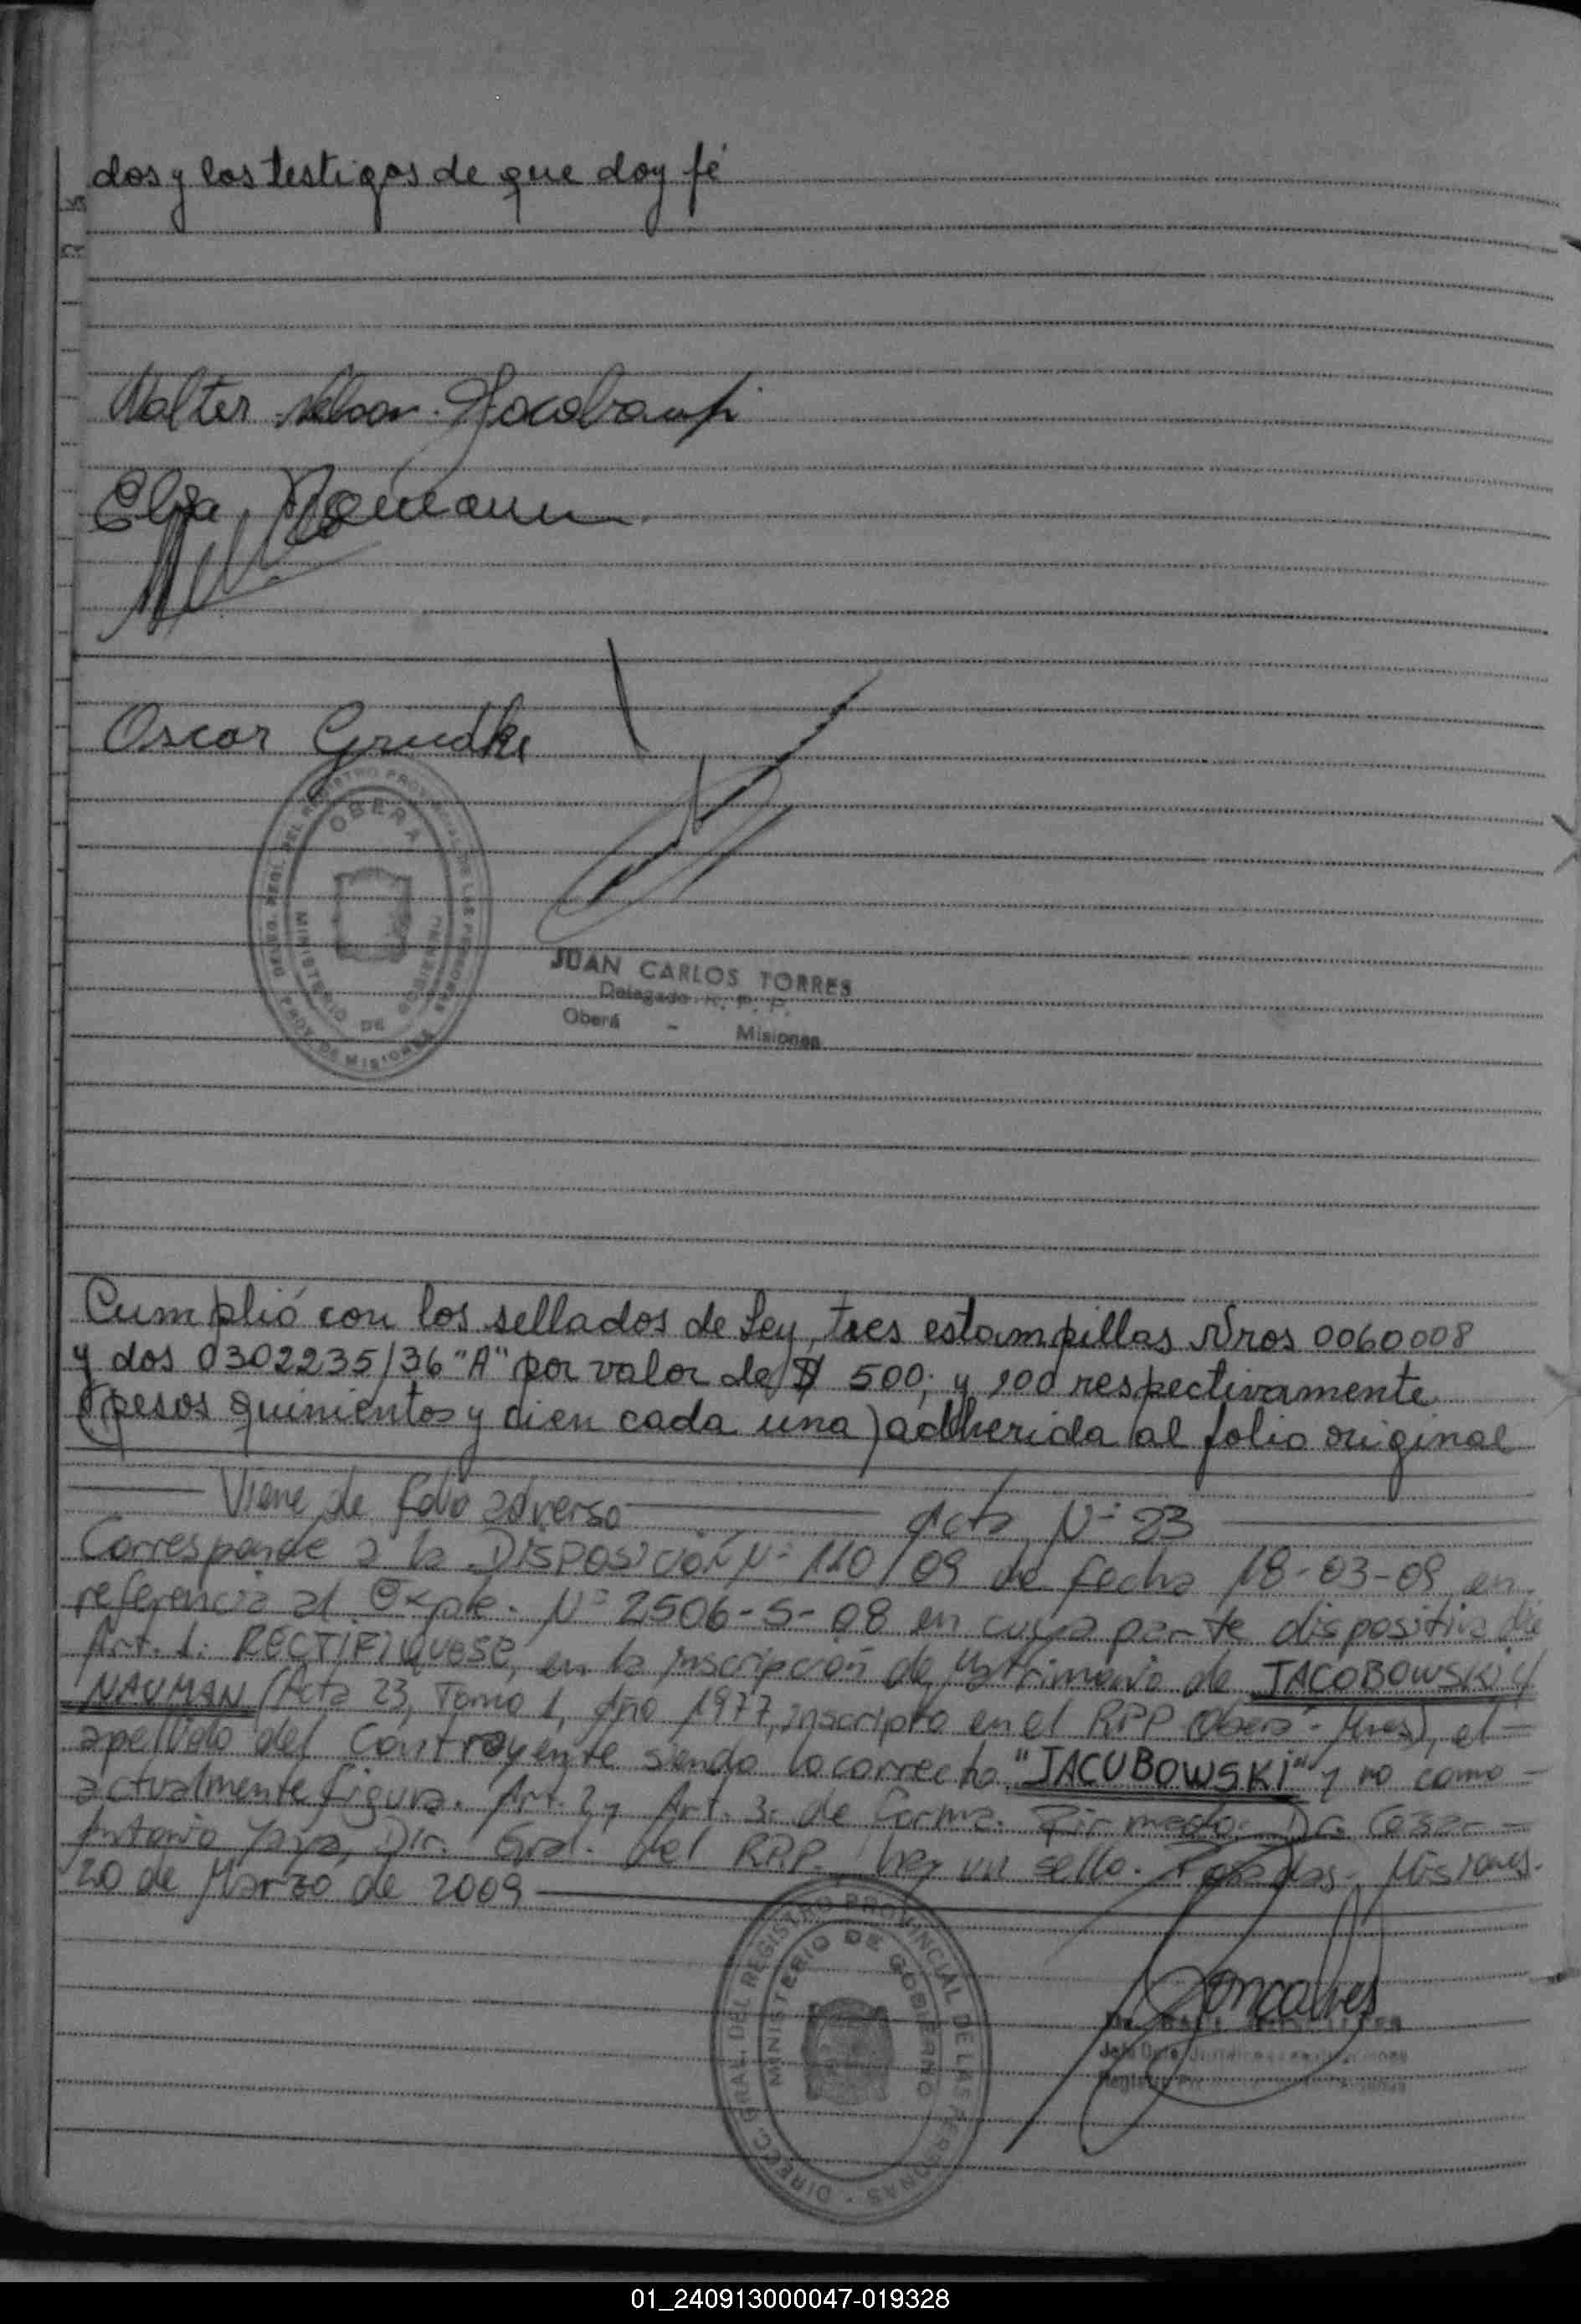 dos y los testigos de que doy fé
Walter Nelson
Elsa
Oscar
DIREC. GRAL. DEL REGISTRO PROVINCIAL DE LAS PERSONAS
OBERA
MINISTERIO DE GOBIERNO
PROV. DE MISIONES
JUAN CARLOS TORRES
Delegado R. P. P.
Oberá - Misiones
Cumplió con los sellados de Ley, tres estampillas Nros 0060008
y dos 0302235/36 "A" por valor de $ 500; y 100 respectivamente
(pesos quinientos y cien cada una) adherida al folio original
Viene de folio adverso Acta Nº 23
Corresponde a la DISPOSICIÓN Nº 110/09 de fecha 18-03-09 en
referencia al Expte. Nº 2506-S-08 en cuya parte dispositiva dice
Art. 1: RECTIFIQUESE, en la inscripción de Matrimonio de JACOBOWSKI y
NAUMAN (Acta 23, Tomo 1, Año 1977, inscripto en el RPP Oberá - Mnes), el
apellido del Contrayente siendo lo correcto "JACUBOWSKI" y no como
actualmente figura. Art. 2 y Art. 3: de forma. Firmado: Dr. Cesar
Antonio Dir. Gral. del RPP. hay un sello. Posadas - Misiones.
20 de Marzo de 2009
DIRECC. GRAL. DEL REGISTRO PROVINCIAL DE LAS PERSONAS
MINISTERIO DE GOBIERNO
Goncalves
01_240913000047-019328